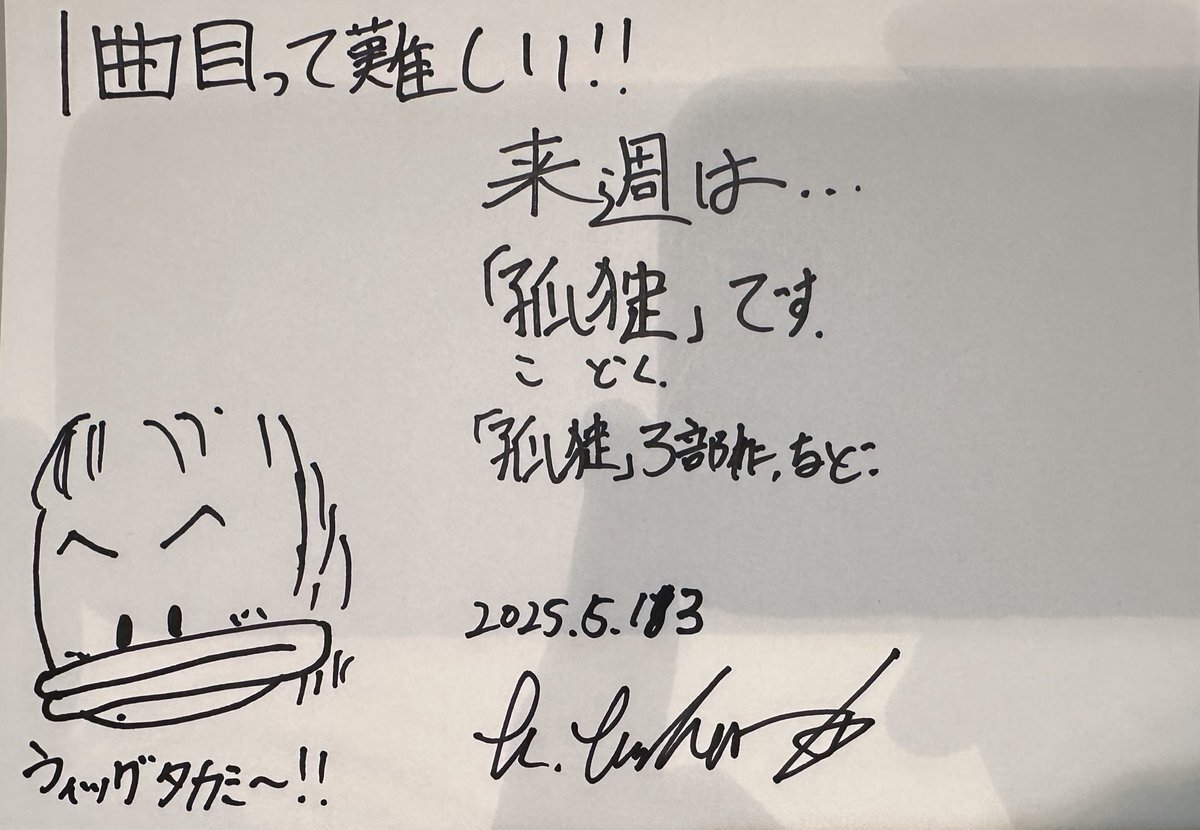 1曲目って難しい!!
来週は…
「孤独」です.
こ どく.
「孤独」3部作,など:
2025.5.13
ウィッグタカミ〜!!